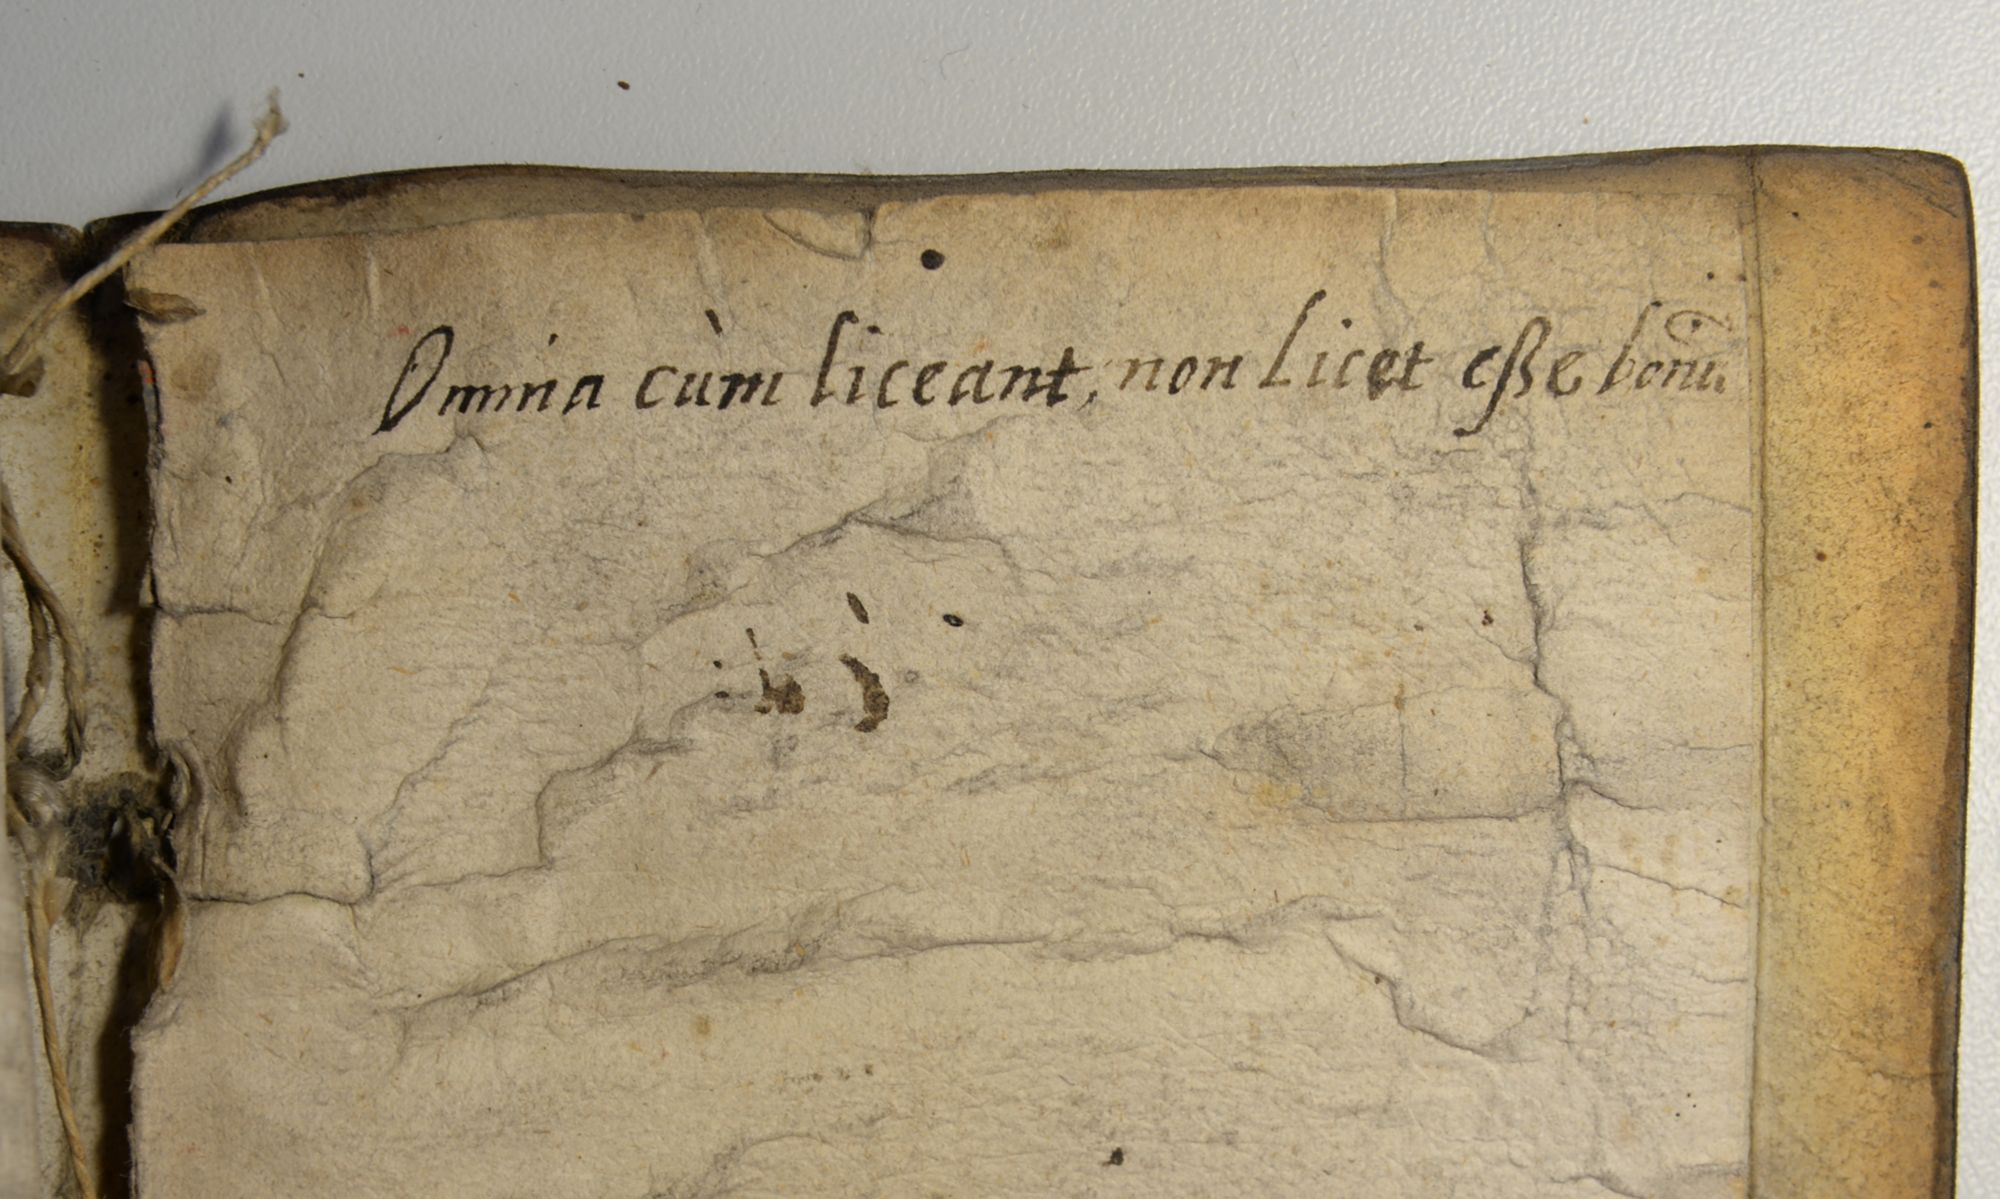 Omnia cùm liceant, non licet eße bonũ